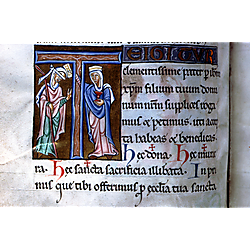 TE IGITUR
clementissime pater p ihm
xpm filium tuum domi
num nrm supplices roga
mus & petimus. uti accep
ta habeas & benedicas
hec dona. Hec mune
ra. Hec sancta sacrificia illibata. In pri
mis que tibi offerimus p ecclia tua sancta